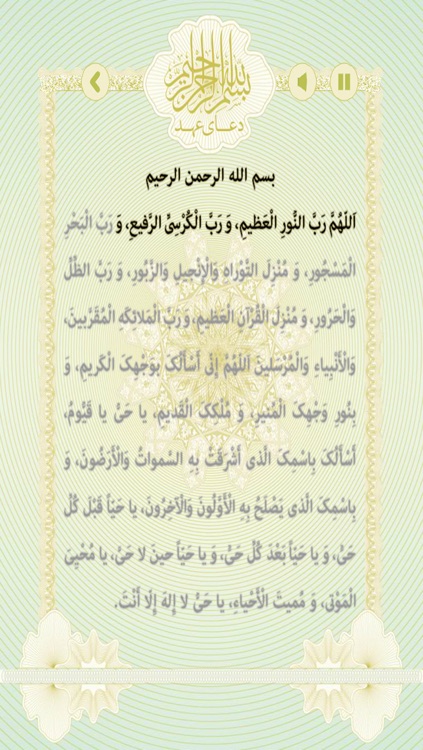 بسم الله الرحمن الرحیم
دعــای عهـد
بسم الله الرحمن الرحیم
اَللّهُمَّ رَبَّ النُّورِ الْعَظیمِ، وَ رَبَّ الْکُرْسِیِّ الرَّفیعِ، وَ رَبَّ الْبَحْرِ
الْمَسْجُورِ، وَ مُنْزِلَ التَّوْراهِ وَالْإِنْجیلِ وَالزَّبُورِ، وَ رَبَّ الظِّلِّ
وَالْحَرُورِ، وَ مُنْزِلَ الْقُرْآنِ الْعَظیمِ، وَ رَبَّ الْمَلائِکَهِ الْمُقَرَّبینَ،
وَالْأَنْبِیاءِ وَالْمُرْسَلینَ اَللّهُمَّ إِنِّی أَسْأَلُکَ بِوَجْهِکَ الْکَریمِ، وَ
بِنُورِ وَجْهِکَ الْمُنیرِ، وَ مُلْکِکَ الْقَدیمِ، یا حَیُّ یا قَیُّومُ،
أَسْأَلُکَ بِاسْمِکَ الَّذی أَشْرَقَتْ بِهِ السَّمواتُ وَالْأَرَضُونَ، وَ
بِاسْمِکَ الَّذی یَصْلَحُ بِهِ الْأَوَّلُونَ وَالْآخِرُونَ، یا حَیّاً قَبْلَ کُلِّ
حَیٍّ، وَ یا حَیّاً بَعْدَ کُلِّ حَیٍّ، وَ یا حَیّاً حینَ لا حَیَّ، یا مُحْیِیَ
الْمَوْتی، وَ مُمیتَ الْأَحْیاءِ، یا حَیُّ لا إِلهَ إِلّا أَنْتَ.